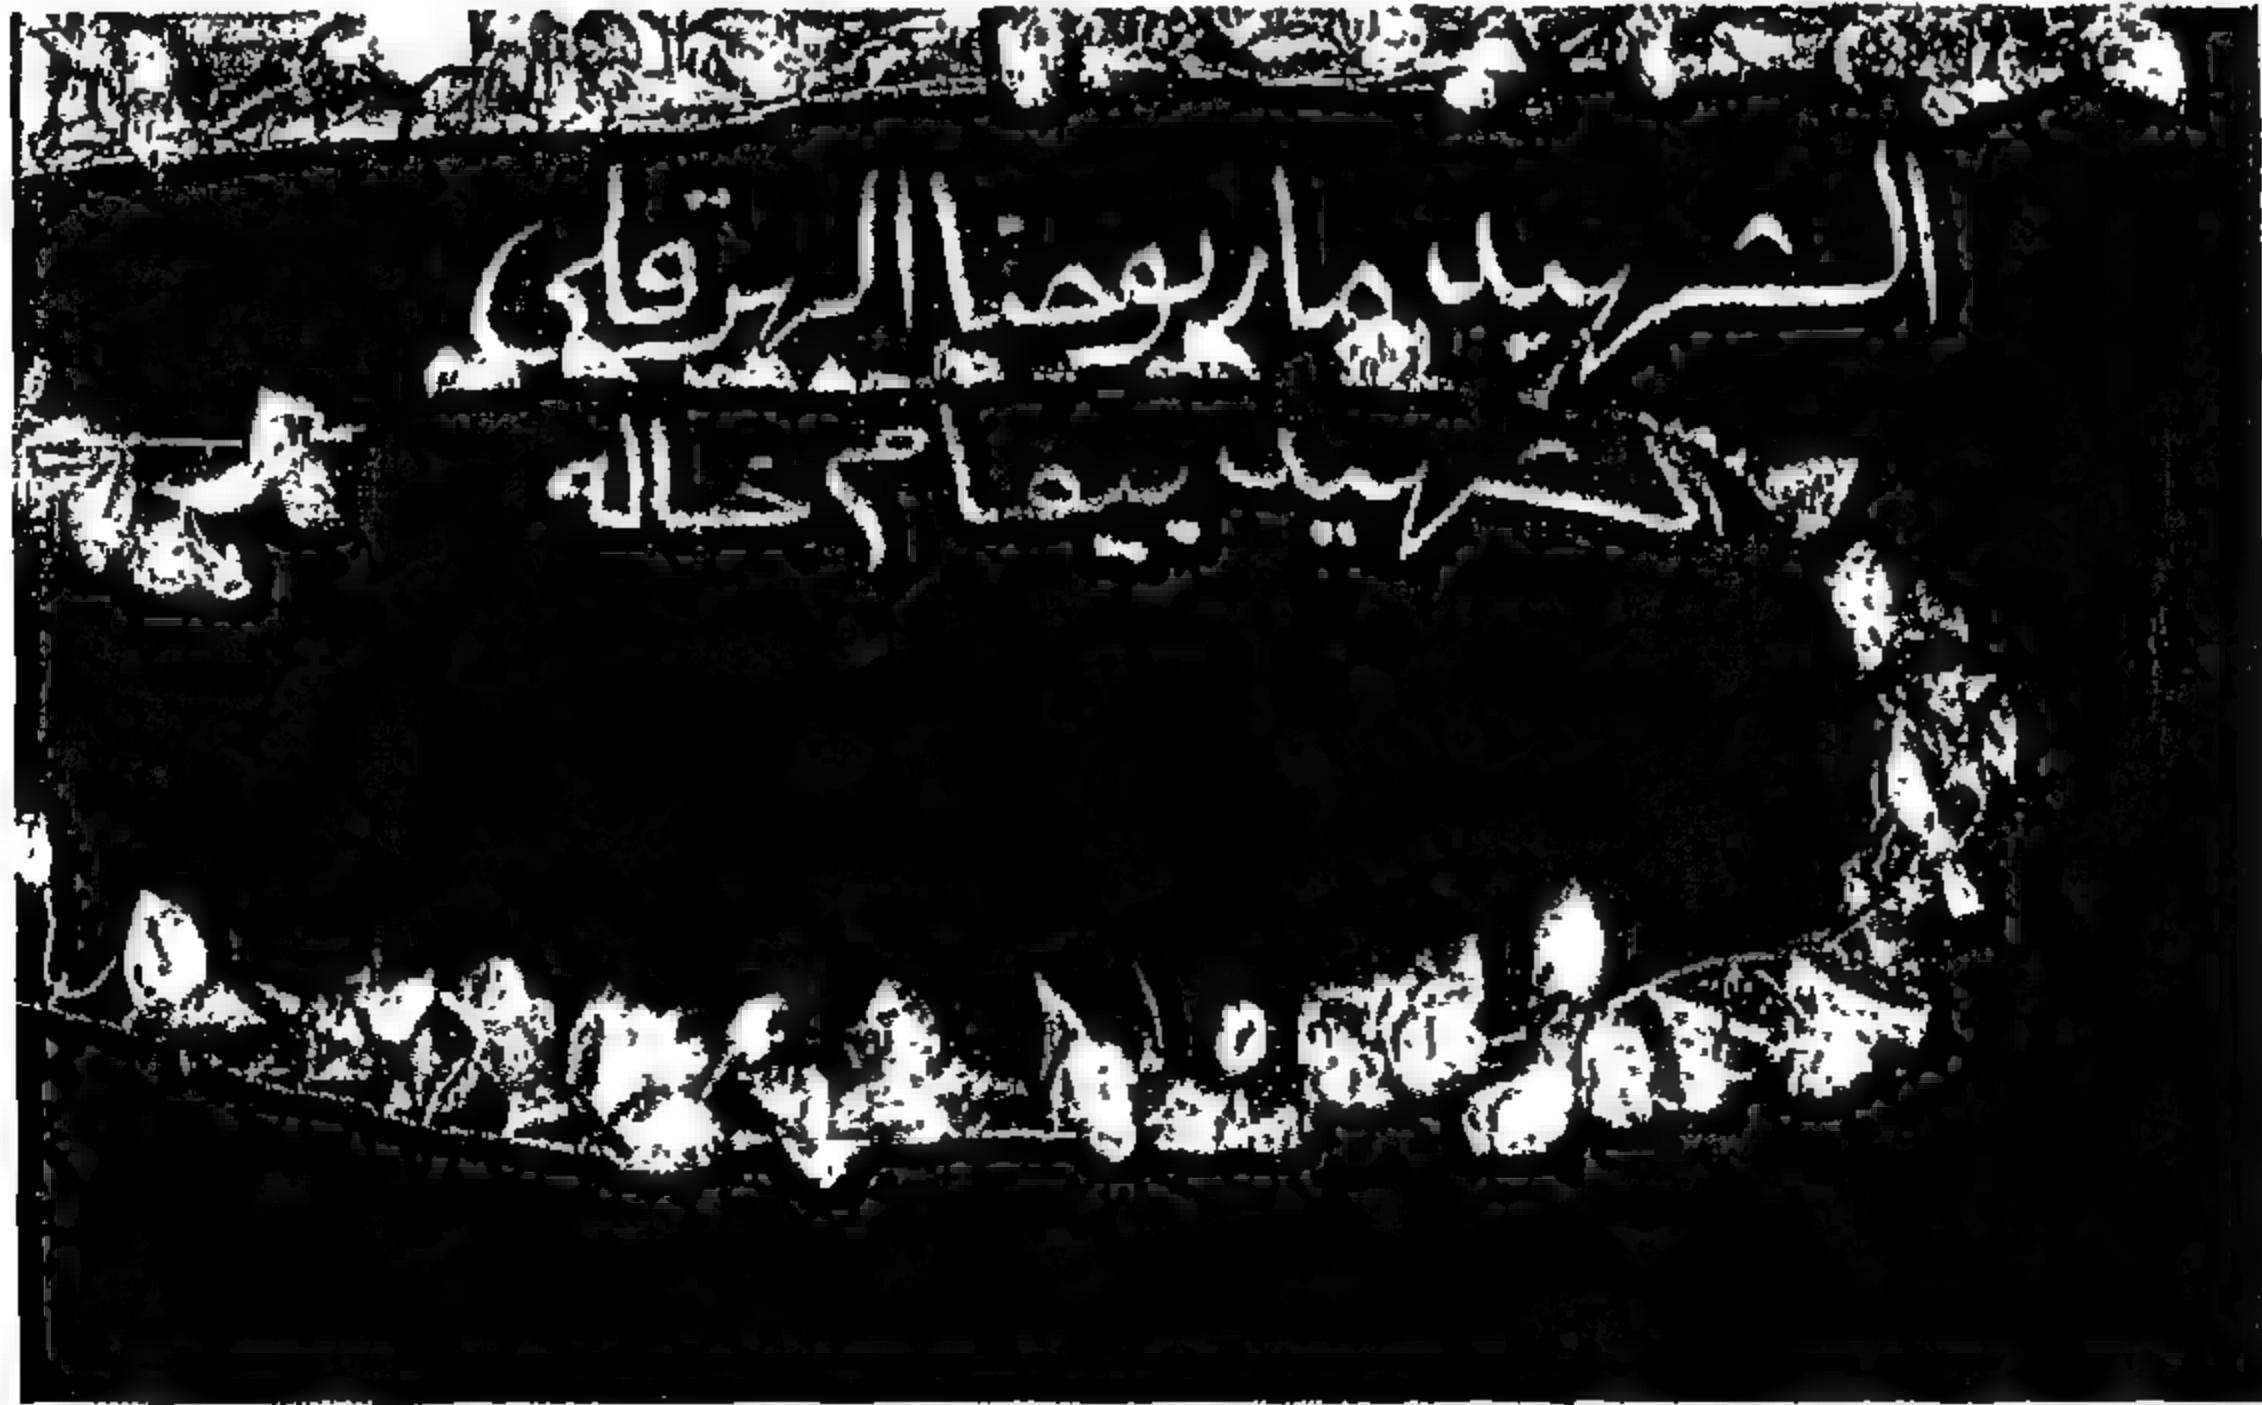 الشهيد مار يوحنا الهرقلى
الشهيد بيفام خاله